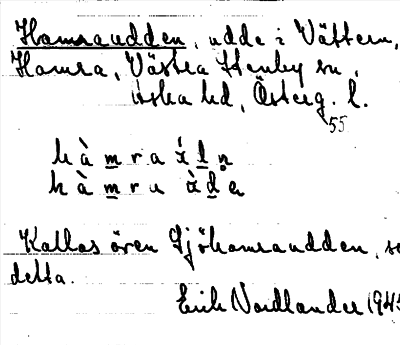 Hamraudden, udde i Vättern,
Hamra, Västra Stenby sn,
Aska hd, Österg. l.
55
h à m r a
h à m r a
Kallas även Sjöhamraudden, se
detta.
Erik Nordlander 1945